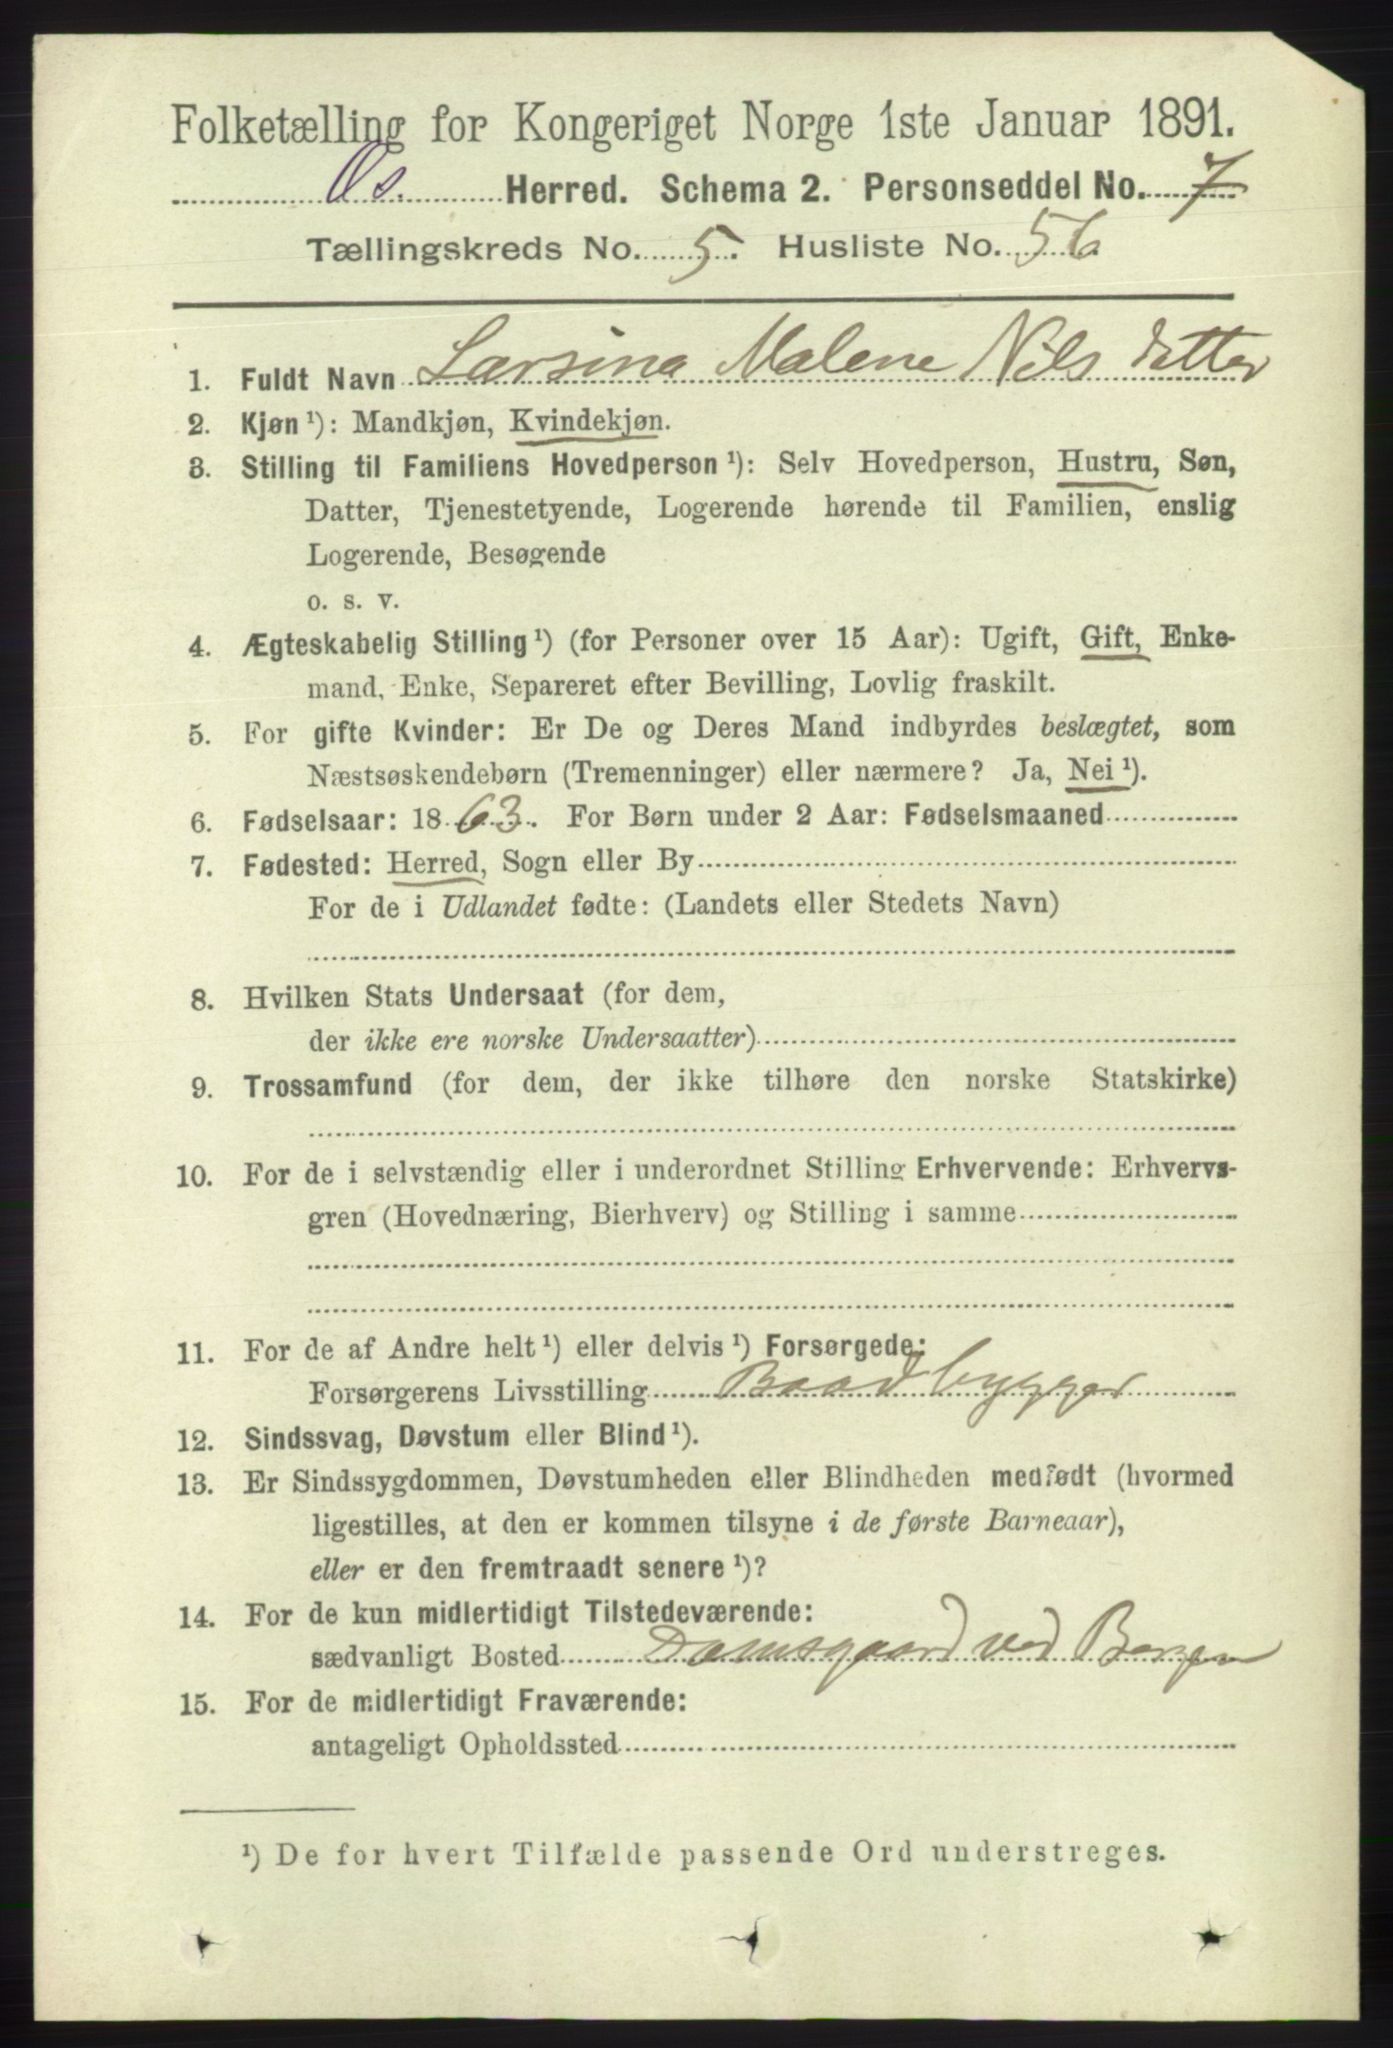 Folketælling for Kongeriget Norge 1ste Januar 1891.
Os. Herred. Schema 2. Personseddel No. 7
Tællingskreds No. 5. Husliste No. 56
1. Fuldt Navn Larsina Malene Nils datter
2. Kjøn ¹): Mandkjøn, Kvindekjøn.
3. Stilling til Familiens Hovedperson ¹): Selv Hovedperson, Hustru, Søn,
Datter, Tjenestetyende, Logerende hørende til Familien, enslig
Logerende, Besøgende
o. s. v.
4. Ægteskabelig Stilling ¹) (for Personer over 15 Aar): Ugift, Gift, Enke-
mand, Enke, Separeret efter Bevilling, Lovlig fraskilt.
5. For gifte Kvinder: Er De og Deres Mand indbyrdes beslægtet, som
Næstsøskendebørn (Tremenninger) eller nærmere? Ja, Nei ¹).
6. Fødselsaar: 1863. For Børn under 2 Aar: Fødselsmaaned
7. Fødested: Herred, Sogn eller By
For de i Udlandet fødte: (Landets eller Stedets Navn)
8. Hvilken Stats Undersaat (for dem,
der ikke ere norske Undersaatter)
9. Trossamfund (for dem, der ikke tilhøre den norske Statskirke)
10. For de i selvstændig eller i underordnet Stilling Erhvervende: Erhvervs-
gren (Hovednæring, Bierhverv) og Stilling i samme
11. For de af Andre helt ¹) eller delvis ¹) Forsørgede:
Forsørgerens Livsstilling Baadbygger
12. Sindssvag, Døvstum eller Blind ¹).
13. Er Sindssygdommen, Døvstumheden eller Blindheden medfødt (hvormed
ligestilles, at den er kommen tilsyne i de første Barneaar),
eller er den fremtraadt senere ¹)?
14. For de kun midlertidigt Tilstedeværende:
sædvanligt Bosted Damsgaard ved Bergen
15. For de midlertidigt Fraværende:
antageligt Opholdssted
¹) De for hvert Tilfælde passende Ord understreges.